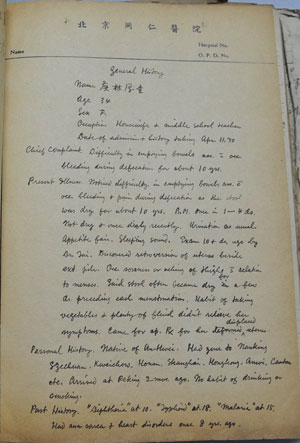 北京同仁醫院
Name
Hospital No.
O. P. D. No.
General History
Name
Age 34
Sex F.
Occupation Housewife & middle school teacher
Date of admission & history taking Apr. 11,
Chief Complaint Difficulty in emptying bowels assoc. c̄ occ.
bleeding during defecation for about 10 yrs.
Present Illness Noticed difficulty in emptying bowels assoc. c̄
occ. bleeding & pain during defecation as the stool
was dry for about 10 yrs. B.M. once in 1-4 ds.
Not dry & once daily recently. Urination as usual.
Appetite fair. Sleeping sound. Exam 10+ ds ago by
Dr. Discovered retroversion of uterus beside
ext. pile. One soreness or aching of thighs s̄ relation
to menses. Said stool often became dry for a few
ds preceding each menstruation. Habit of taking
vegetables & plenty of fluid didn't relieve her
symptoms. Came for op. Rx for her displaced uterus.
Personal History. Native of Anhwei. Had gone to Nanking
Szechuan, Kweichow, Honan, Shanghai, Hongkong, Amoi, Canton
etc. Arrived at Peking 2 mos. ago. No habit of drinking or
smoking.
Past History. "Diphtheria" at 10. "Typhoid" at 18. "Malaria" at 15.
Had & heart disorders one 8 yrs. ago.